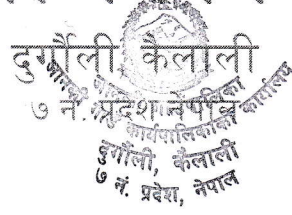 दुर्गौली, कैलाली
७ नं. प्रदेश नेपाल
कार्यपालिकाको कार्यालय
दुर्गौली, कैलाली
७ नं. प्रदेश, नेपाल